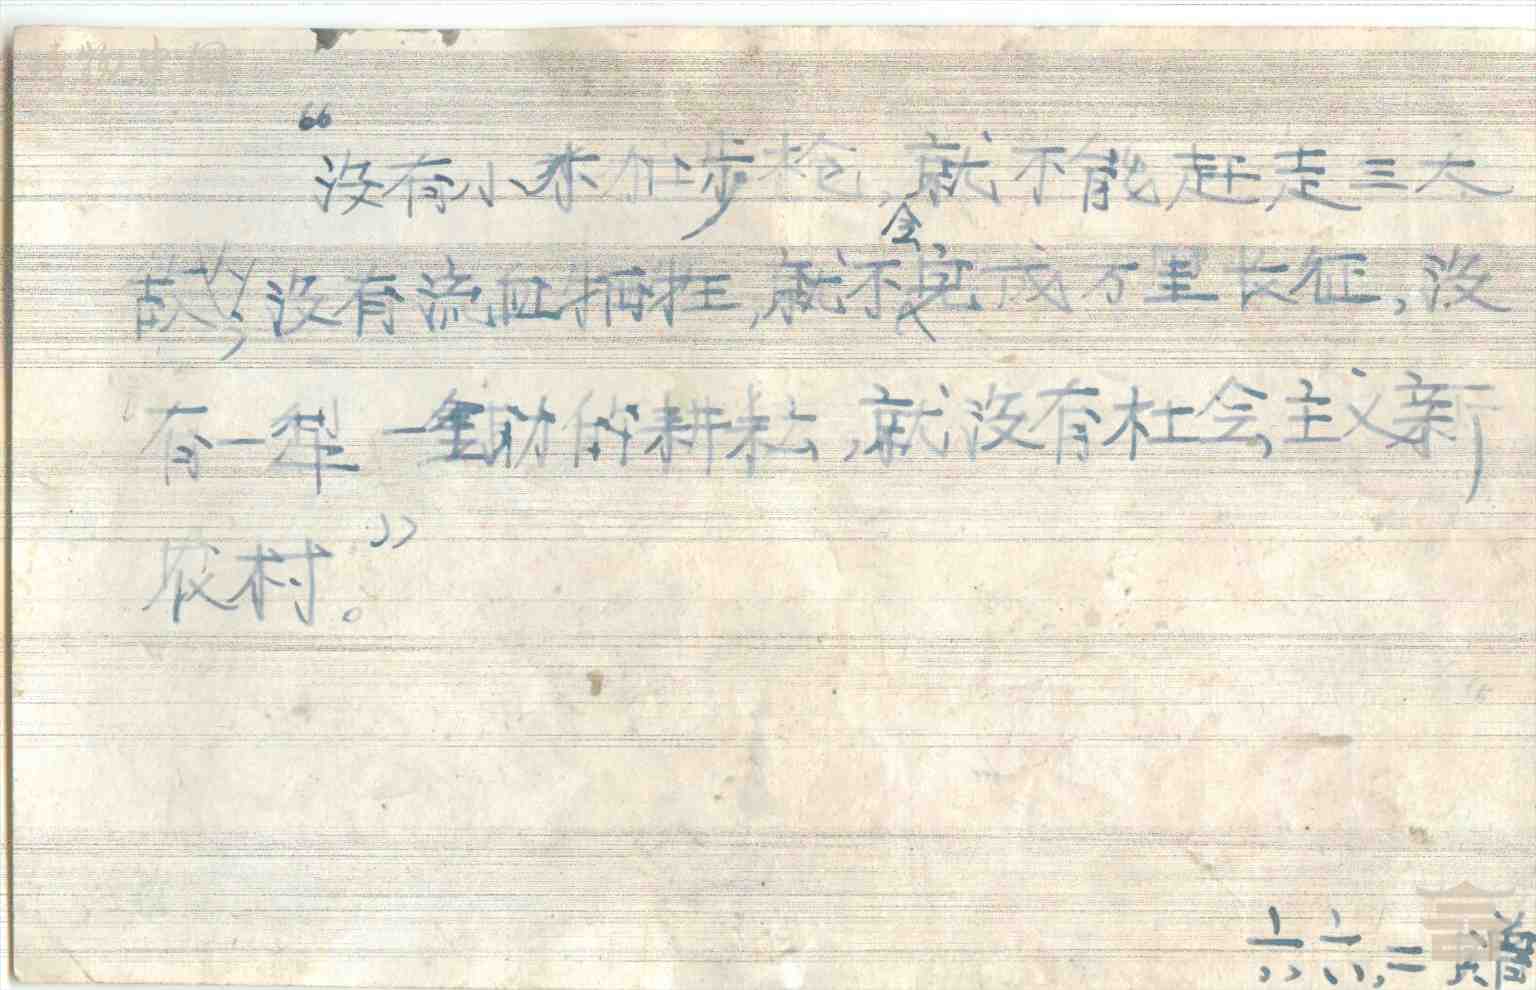 “没有小米加步枪,就不能赶走三大
敌,没有流血牺牲,就不会完成万里长征,没
有一犁一锄的耕耘,就没有社会主义新
农村。”
六六.二.六